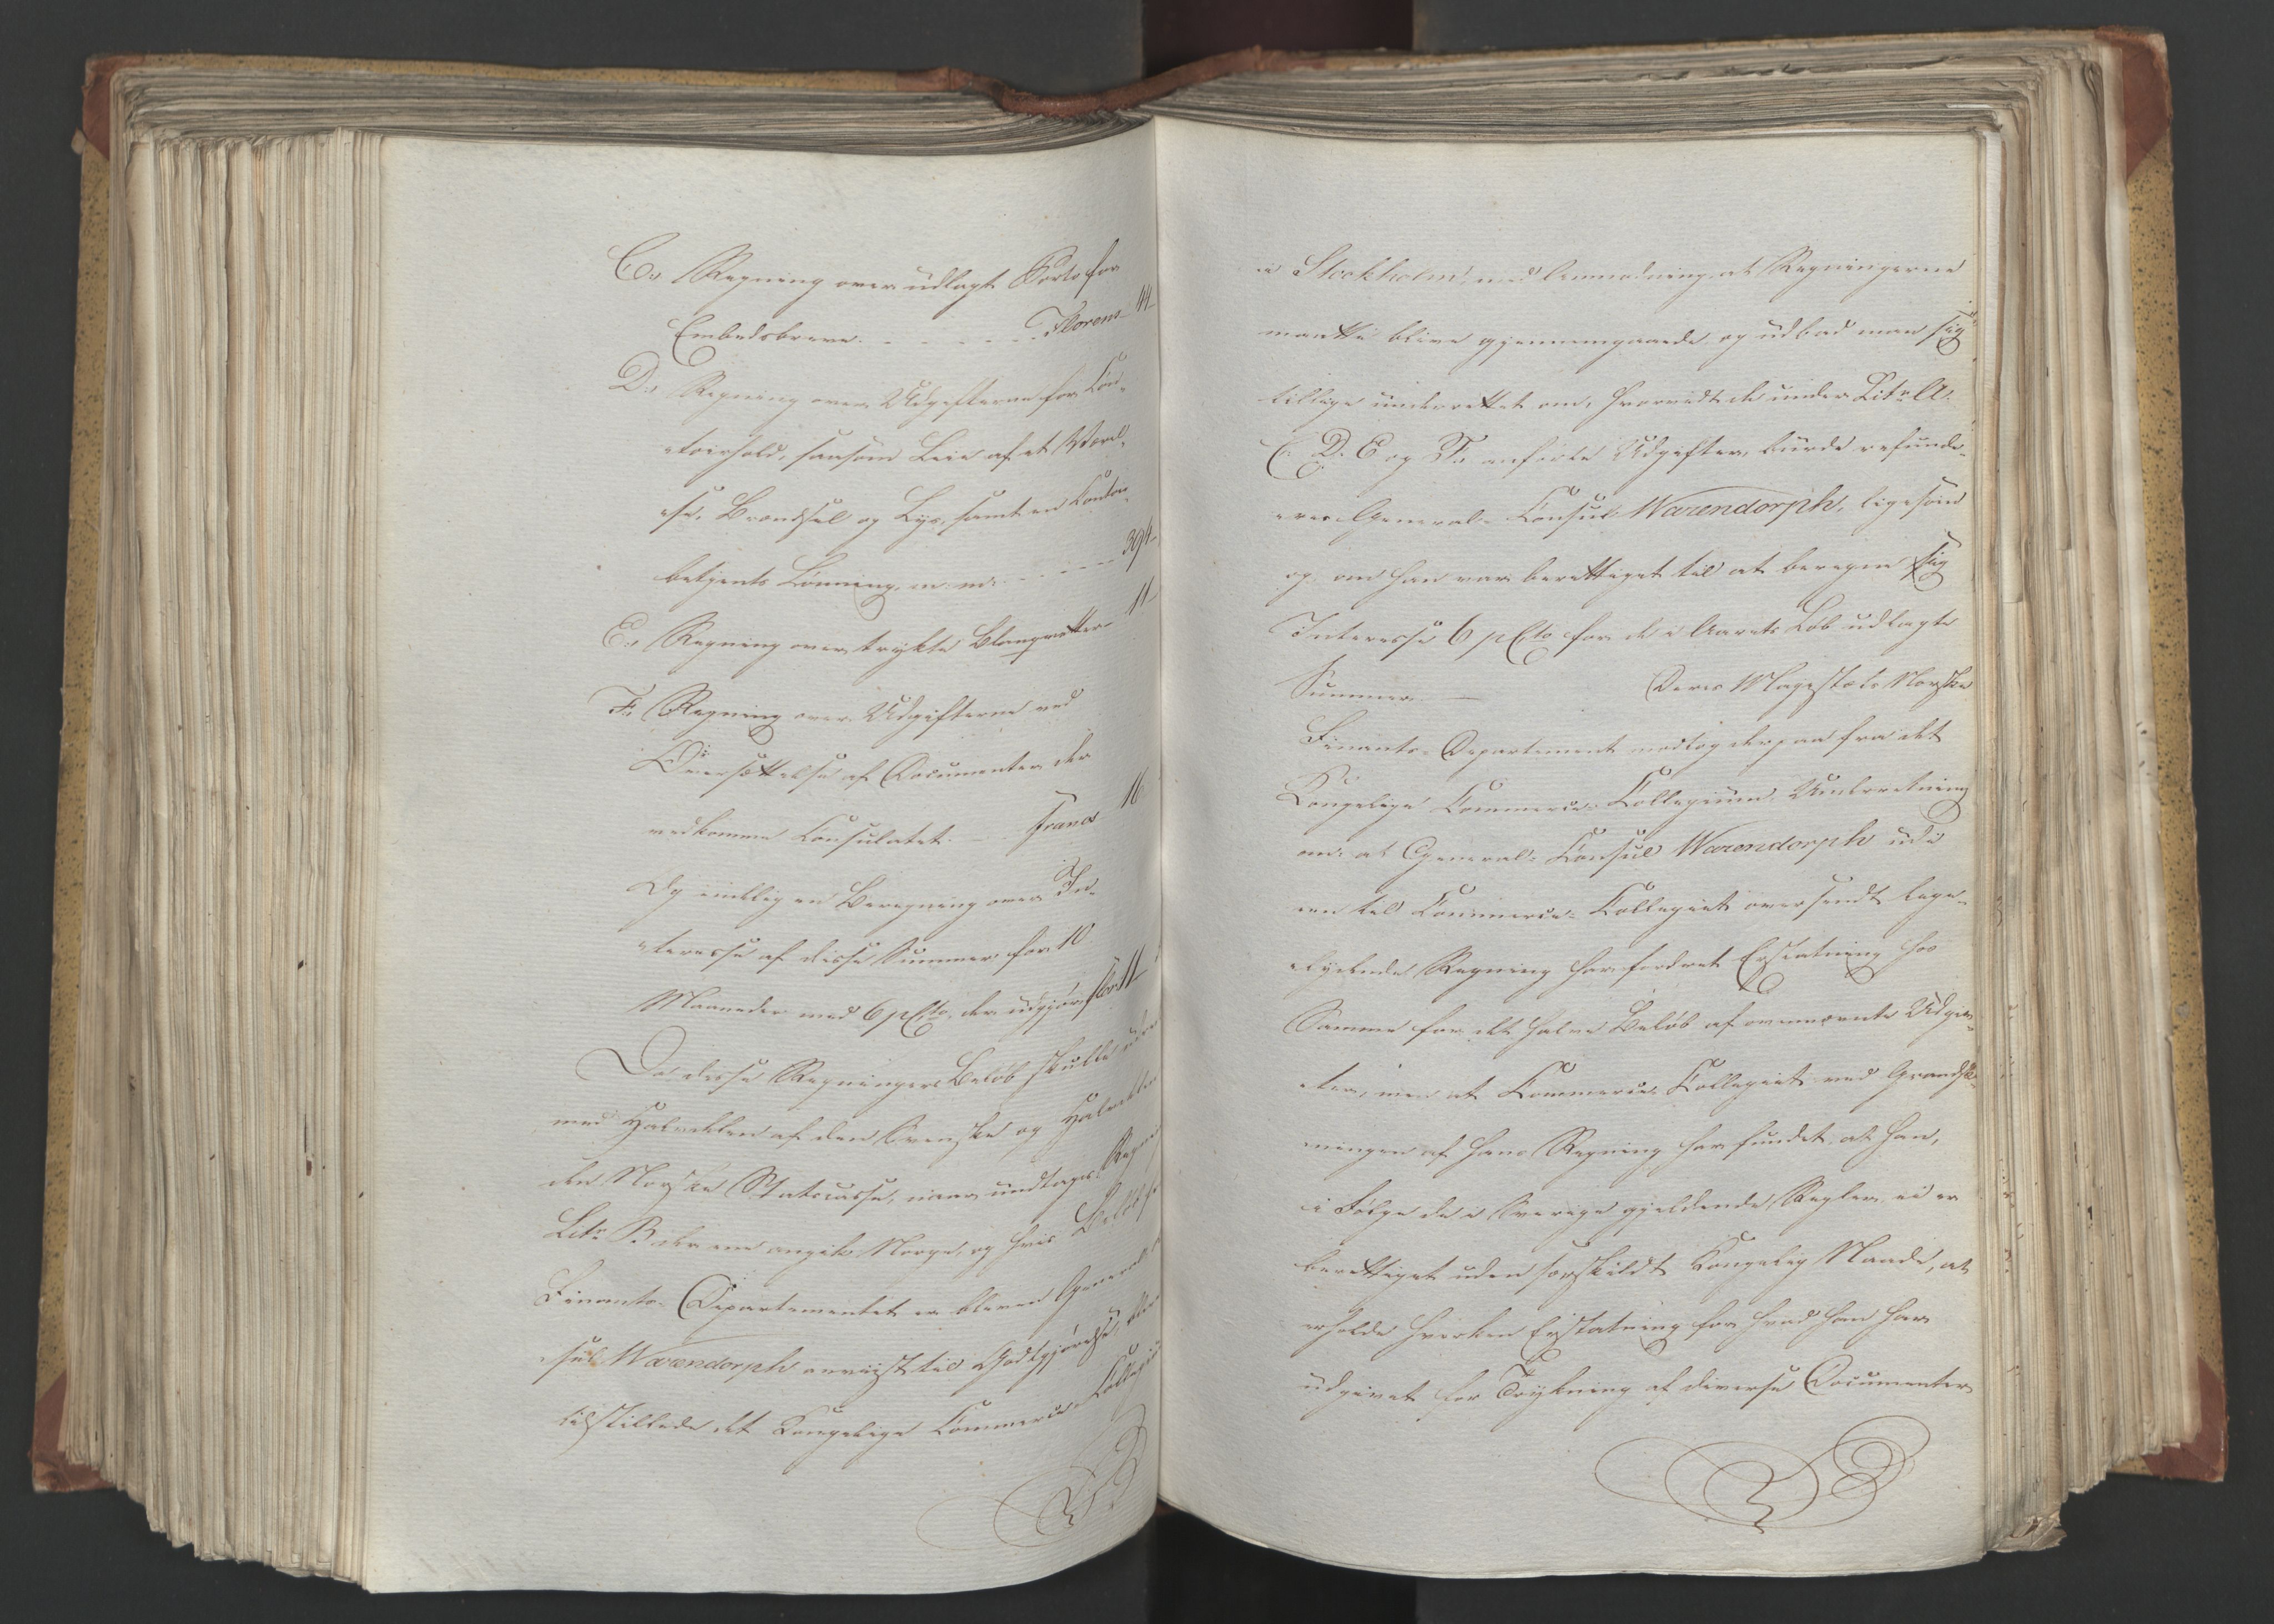 C., Regning over udlagt Porto for
Embedsbreve. - - - - - Florens 44-
D., Regning over Udgifterne for Con-
-toirhold, saasom Leie af et Værel-
-se, Brændsel og Lys, samt en Contoir-
betjents Lønning, m: m: - - - - - 394-
E., Regning over trykte Blanquetter 11-
F., Regning over Udgifterne ved
Oversættelse af Documenter der
vedkomme Consulatet. - Francs 16
Og endelig en Beregning over In-
-teresse af disse Summer for 10
Maaneder med 6 pCto, der udgjør flor: 11-
Da disse Regningers Beløb skulle udre
med Halvdelen af den Svenske og Halvdelen
den Norske Statscasse, naar undtages Regni
Litr. B der ene angik Norge, og hvis Beløb f
Finants-Departementet er bleven General
-sul Warendorph anviist til Godtgjørelse,
tilstillede det Kongelige Commerce-Collegiu
i Stockholm, med Anmodning at Regningerne
maatte blive gjennemgaaede og udbad man sig
tillige underrettet om, hvorvidt de under Litr. A.
C. D. E og F. anførte Udgifter, burde refunde-
-res General-Consul Warendorph, ligesom
og om han var berettiget til at beregne sig
Interesse 6 pCto for de i Aarets Løb udlagte
Summer. — Deres Majestæts Norske
Finants-Departement modtog derpaa fra det
Kongelige Commerce-Collegium, Underretning
om at General-Consul Warendorph udi
en til Commerce-Collegiet oversendt lige-
-lydende Regning har fordret Erstatning hos
Samme for det halve Beløb af ovennævnte Udgif-
-ter, men at Commerce Collegiet ved Grandsk-
-ningen af hans Regning har fundet, at han,
i Følge de i Sverige gjeldende Regler ei er
berettiget uden særskildt Kongelig Naade, at
erholde hverken Erstatning for hvad han har
udgivet for Trykning af diverse Documenter